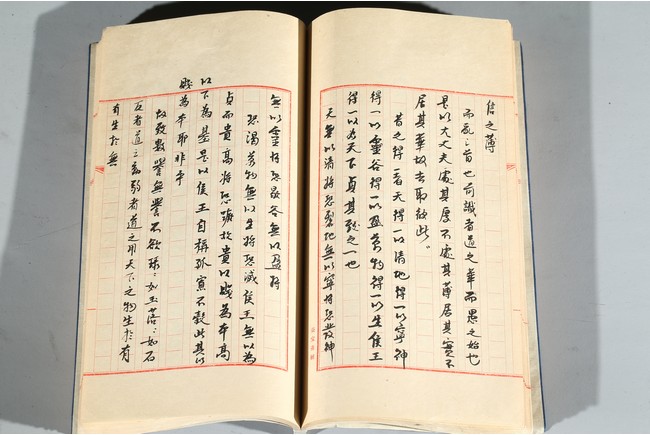 信之薄
而亂之首也前識者道之華而愚之始也
是以大丈夫處其厚不處其薄居其實不
居其華故去取彼此。
昔之得一者天得一以清地得一以寧神
得一以靈谷得一以盈萬物得一以生侯王
得一以為天下貞其致之一也
天無以清將恐裂地無以寧將恐發神
無以靈將恐歇谷無以盈將
恐渴萬物無以生將恐滅侯王無以為
貞而貴高將恐蹶故貴以賤為本高
以下為基是以侯王自稱孤寡不穀此其以
賤為本耶非乎
故致數譽無譽不欲琭:如玉落:如石
反者道之動弱者道之用天下之物生於有
有生於無